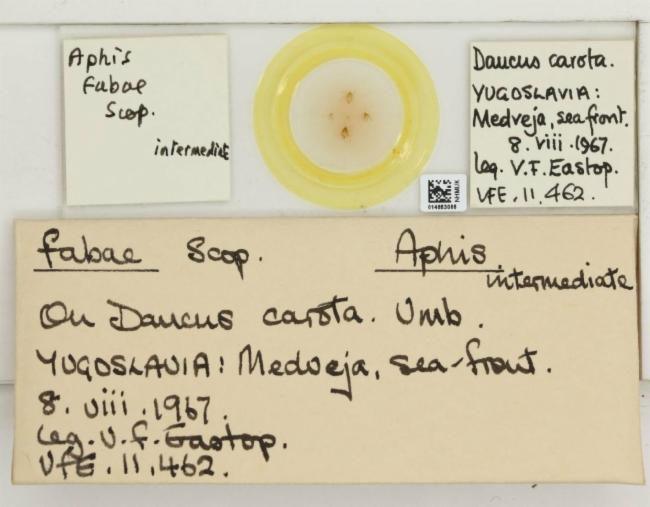 Aphis
Fabae
Scop.
intermediate
Daucus carota.
YUGOSLAVIA:
Medveja, sea front.
8. viii. 1967.
leg. V.F. Eastop.
VFE. 11,462.
NHMUK
014663086
fabae Scop. Aphis.
intermediate
On Daucus carota. Umb.
YUGOSLAVIA: Medveja, sea-front.
8. viii. 1967.
leg. V. F. Eastop.
VFE. 11,462.